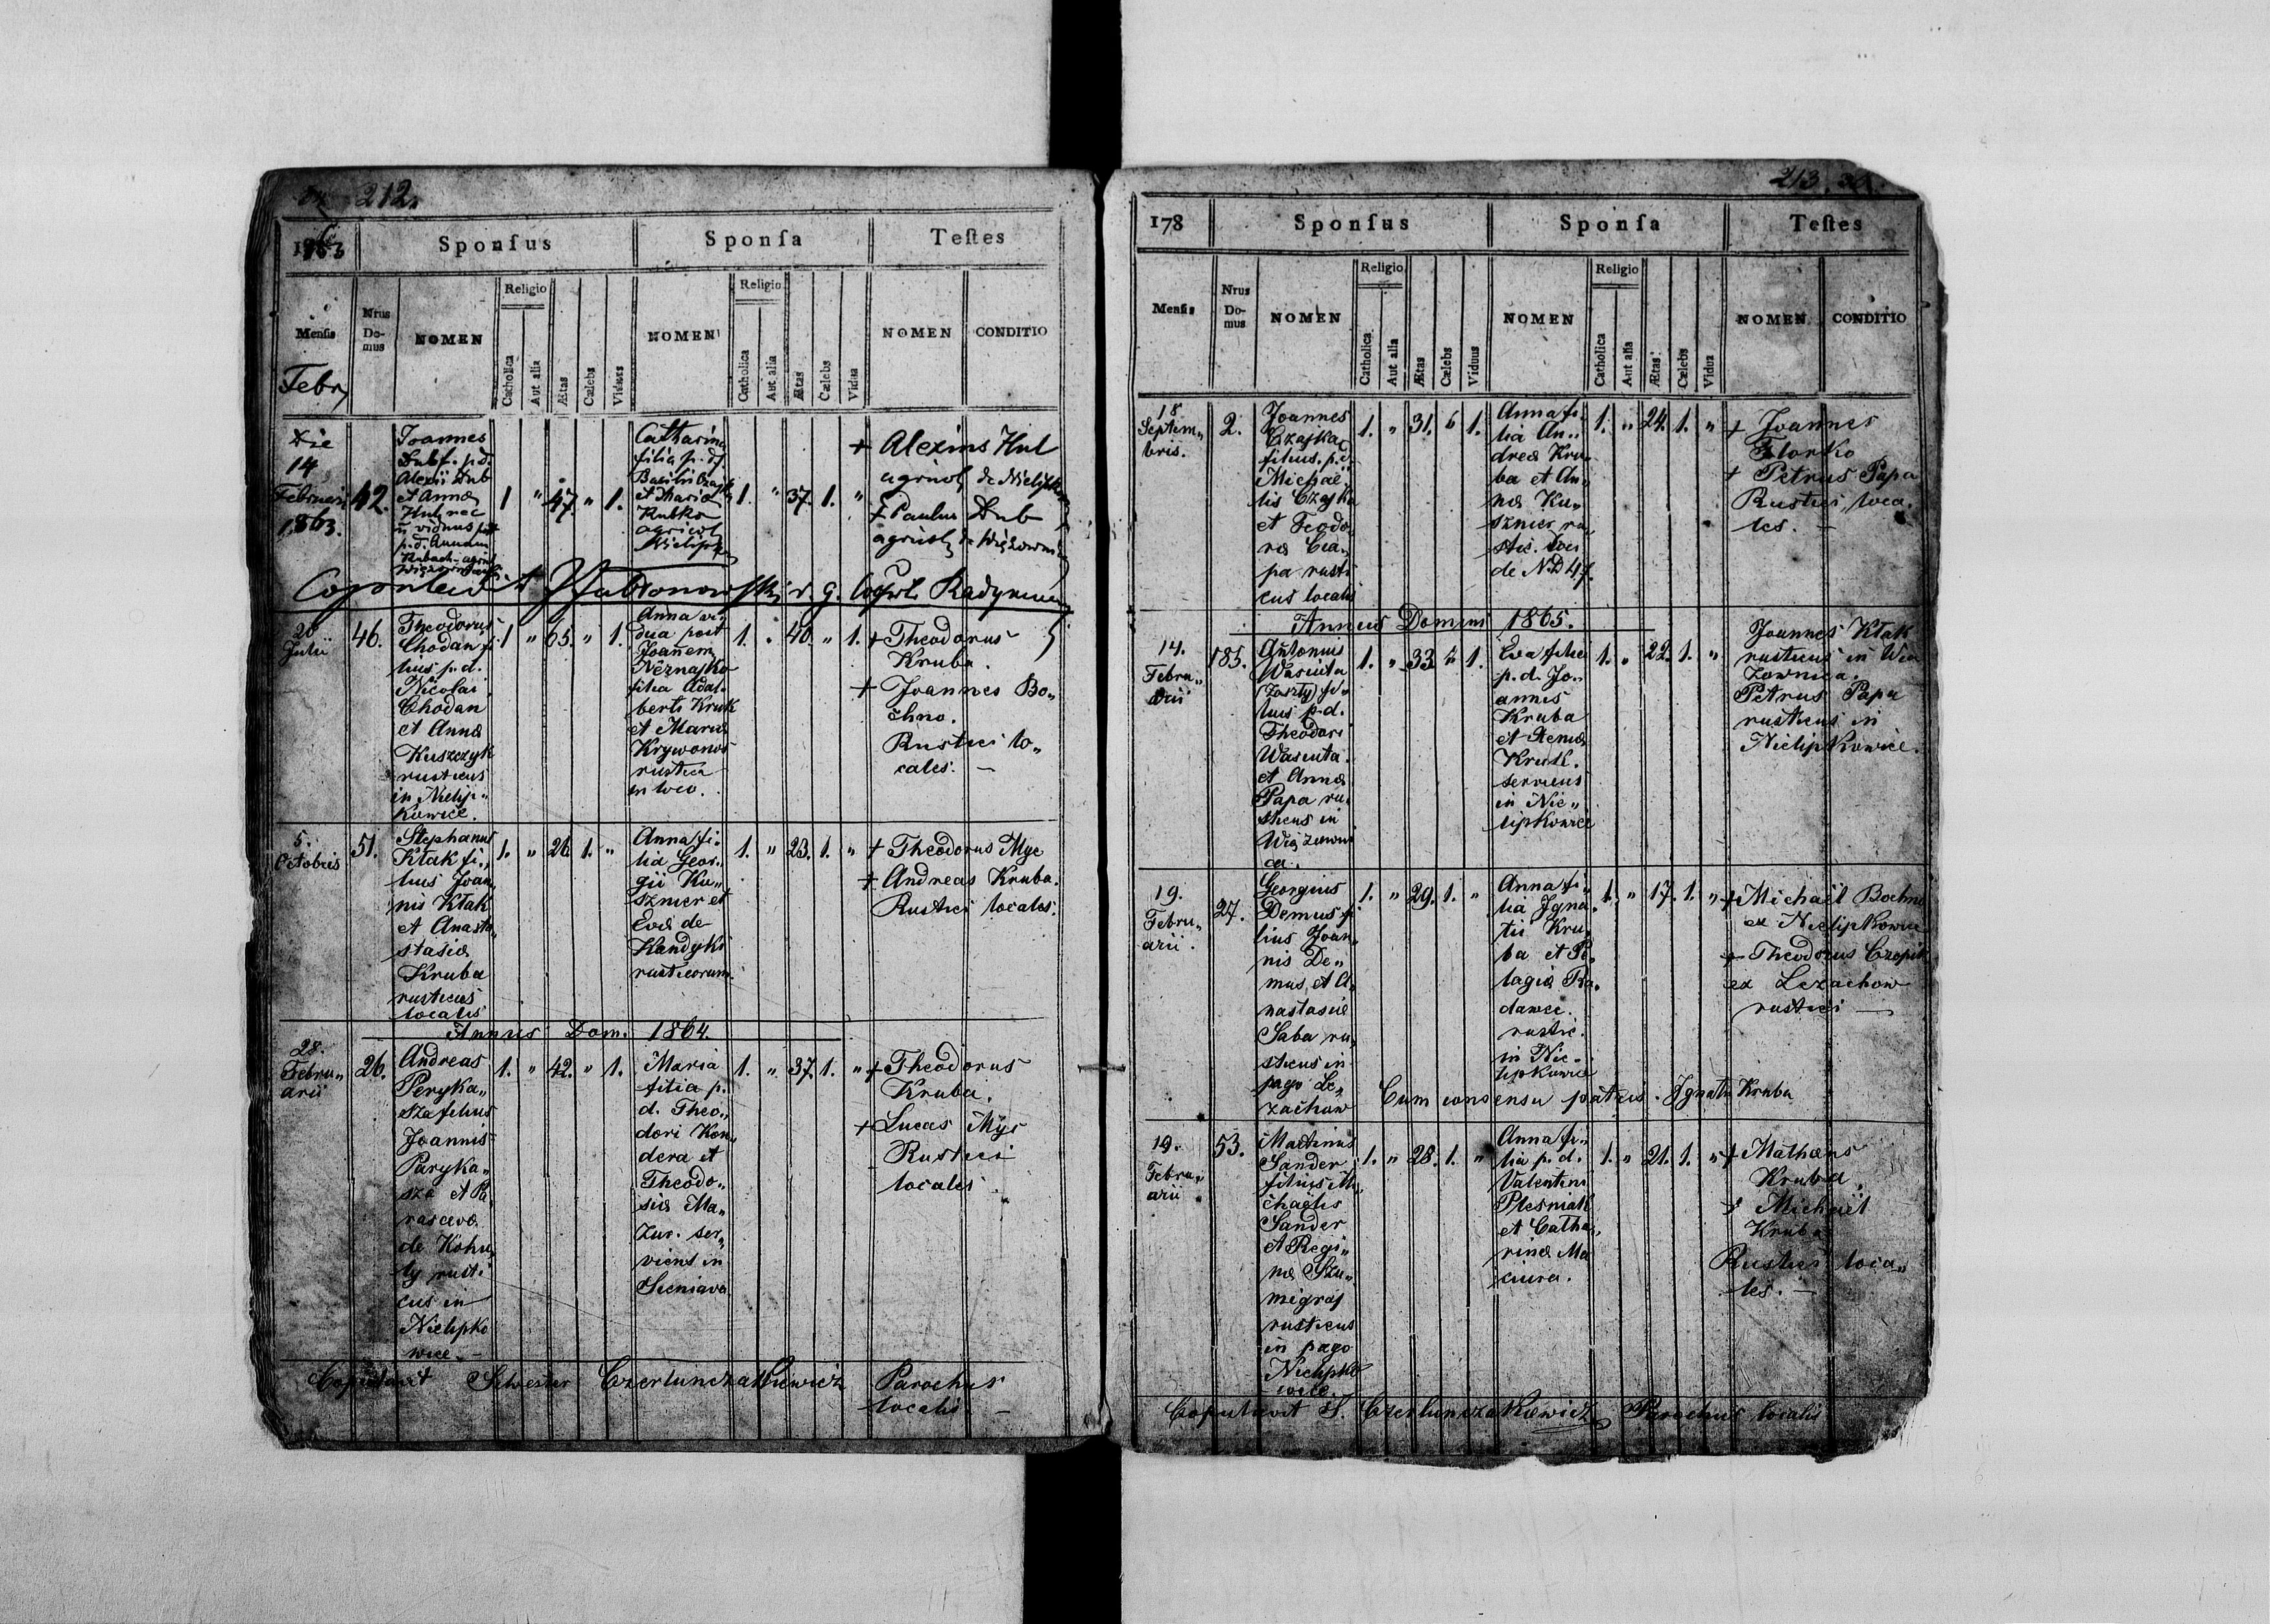 212.
1863
Sponsus
Sponsa
Testes
Mensis
Nrus Domus
NOMEN
Religio
Catholica
Aut alia
Ætas
Cælebs
Viduus
NOMEN
Religio
Catholica
Aut alia
Ætas
Cælebs
Vidua
NOMEN
CONDITIO
Febr
Die
14
Februarii
1863.
42.
Joannes
Dub f. p.d.
Alexii Dub
et Annæ
Hub nec
viduus post
p.d. Annam
1 " 47 " 1.
Catharina
filia p. d.
Basilii
et Maria
Kubka
agricol
1. " 37. 1. "
+ Alexius Hul
agricol de Nielipkow
+ Paulus Dub
agricol de Wiązowni
Copulavit Jabłonowski
20
Julii
46.
Theodorus
Chodan fi
lius p. d.
Nicolai
Chodan
et Annæ
Kuszczyk
rusticus
in Nielip„
kowice.
1 " 65. " 1.
Anna vi„
dua post
Joannem
Nëznajko
filia Adal„
berti Kruk
et Mariæ
Krywonos
rustica
in loco.
1. " 40. " 1.
+ Theodorus
Kruba.
+ Joannes Bo„
chno.
Rustici lo„
cales. —
5.
Octobris
51.
Stephanus
Kłak fi„
lius Joan„
nis Kłak
et Anasta„
stasiæ
Kruba
rusticus
localis
1. " 26. 1. "
Anna fi„
lia Geor„
gii Ku„
sznier et
Evæ de
Kendyki
rusticorum.
1. " 23. 1. "
+ Theodorus Myc
+ Andreas Kruba.
Rustici locales.
Annus Dom. 1864.
28.
Febru„
arii
26.
Andreas
Peryka„
sza filius
Joannis
Paryka„
sza et Pa
rascevæ
de Kohu„
ty rusti
cus in
Nielipko
wice. —
1. " 42. " 1.
Maria
filia p.
d. Theo„
dori Kon„
dera et
Theodo„
siæ Ma„
zur. ser„
viens in
Sieniava
1. " 37. 1. "
+ Theodorus
Kruba.
+ Lucas Myc
Rustici
locales
Copulavit Silvester Czerlunczakiewicz Parochus
localis. —
213.
178
Sponsus
Sponsa
Testes
Mensis
Nrus Domus
NOMEN
Religio
Catholica
Aut alia
Ætas
Cælebs
Viduus
NOMEN
Religio
Catholica
Aut alia
Ætas
Cælebs
Vidua
NOMEN
CONDITIO
18
Septem„
bris.
2.
Joannes
Czajka
filius p.d.
Michae„
lis Czajka
et Teodo„
ræ Cia„
pa rusti
cus localis
1. " 31. " 1.
Anna fi„
lia An„
dreæ Kru„
ba et An„
næ Ku„
sznier ru„
stic. loci
de N.D 47.
1. " 24. 1. "
+ Joannes
Florko
+ Petrus Papa
Rustici loca„
les. —
Annus Domini 1865.
14.
Febru„
arii
185.
Antonius
Wasiuta
fi„
lius p.d.
Theodori
Wasiuta
et Annæ
Papa ru„
sticus in
Wiązowni
ca.
1. " 33. " 1.
Eva filia
p. d. Jo„
annis
Kruba
et
Kruk.
serviens
in Nie„
lipkowice
1. " 22. 1. "
Joannes Kłak
rusticus in Wią
zownica.
Petrus Papa
rusticus in
Nielipkowice.
19.
Febru„
arii.
27.
Georgius
Demus fi
lius Joan„
nis De„
mus, et A„
nastasiæ
Saba ru„
sticus in
pago Le„
zachow
1. " 29. 1. "
Anna fi„
lia Igna„
tii Kru„
ba et Pe„
lagiæ Ra„
dawiec.
rustic.
in Nie„
lipkowice
1. " 17. 1. "
+ Michaël Bochno
ex Nielipkowice
+ Theodorus
ex Lezachow
rustici —
Cum consensu patris. Ignatii Kruba
19.
Febru„
arii
53.
Martinus
Sander
filius Mi„
chaëlis
Sander
et Regi„
næ Szu„
migraj
rusticus
in pago
Nielipko
wice.
1. " 28. 1. "
Anna fi„
lia p. d.
Valentini
Plesniak
et Catha„
rinæ Ma
ciura.
1. " 21. 1. "
+ Mathæus
Kruba.
+ Michaël
Kruba
Rustici loca„
les. —
Copulavit S. Czerlunczakiewicz Parochus localis